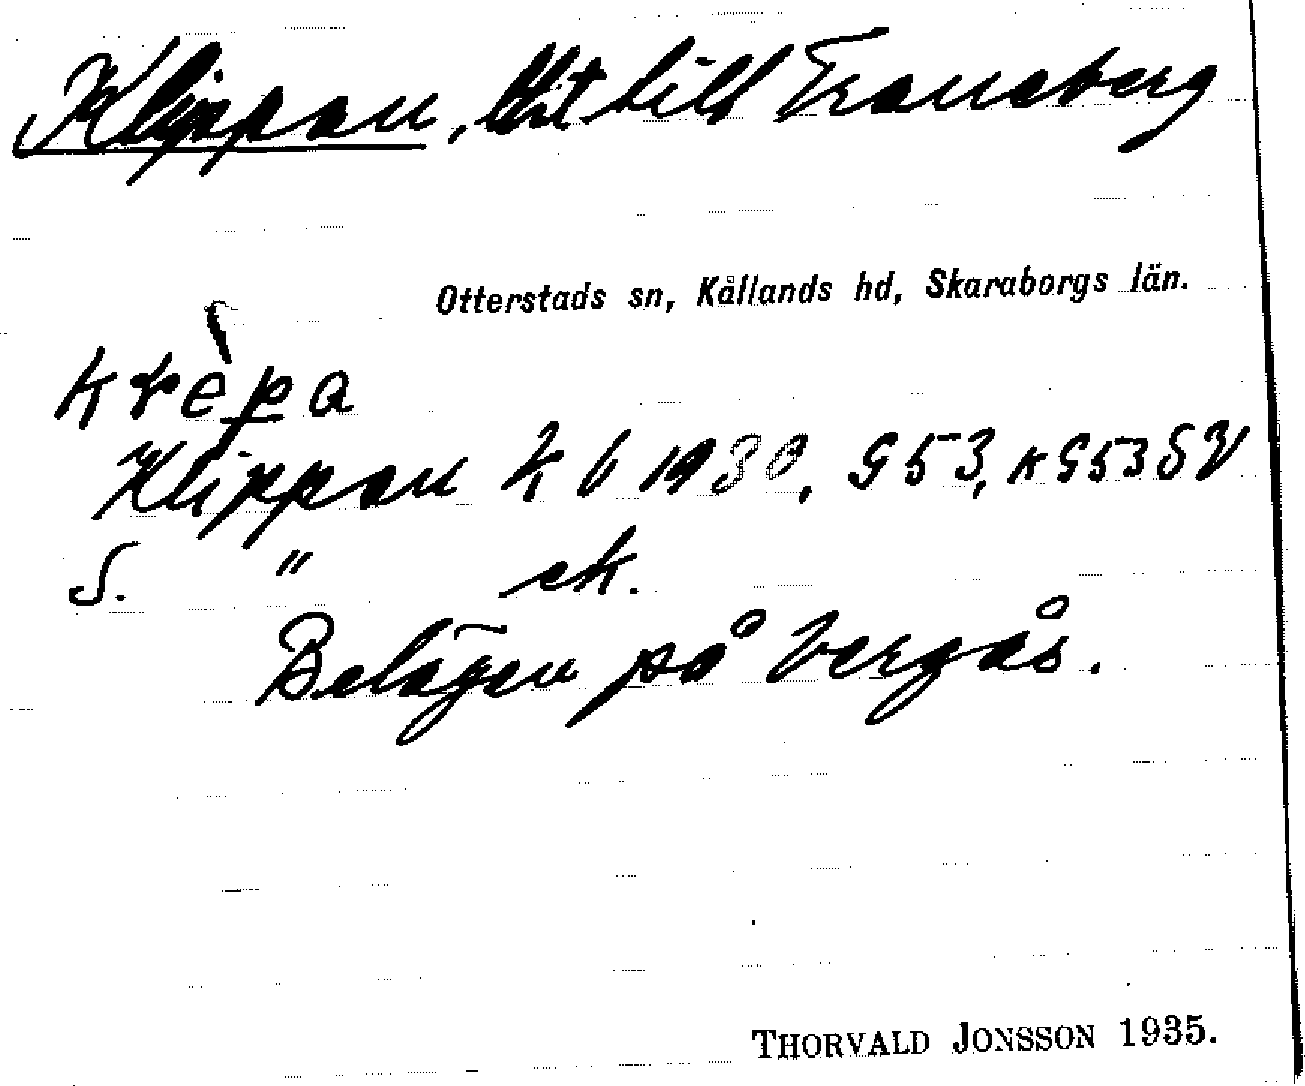 Klippan, lht till Traneberg
Otterstads sn, Kållands hd, Skaraborgs län.
krèpa
Klippan kb 1930, G53, KG53SV
S. " ek.
Belägen på bergås.
THORVALD JONSSON 1935.